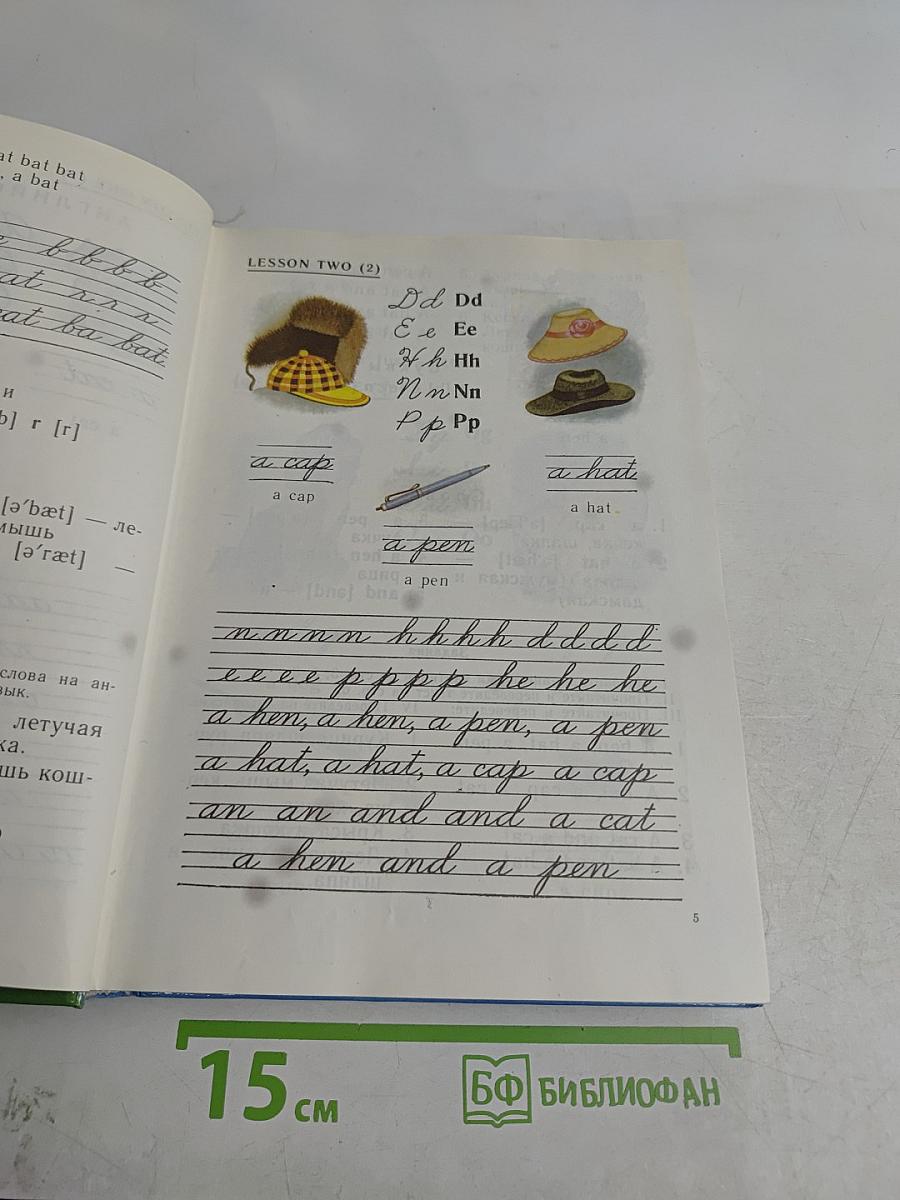 at bat bat
, a bat
b b b b
at r r r
cat ba bat
и
b] r [r]
[ə′bæt] — ле-
мышь
[ə′ræt] —
слова на ан-
зык.
летучая
ка.
шь кош-
LESSON TWO (2)
Dd Dd
Ee Ee
Hh Hh
Nn Nn
Pp Pp
a cap
a cap
a hat
a hat
a pen
a pen
n n n n h h h h d d d d
e e e e p p p p he he he
a hen, a hen, a pen, a pen
a hat, a hat, a cap a cap
an an and and a cat
a hen and a pen
5
15 см
БФ БИБЛИОФАН